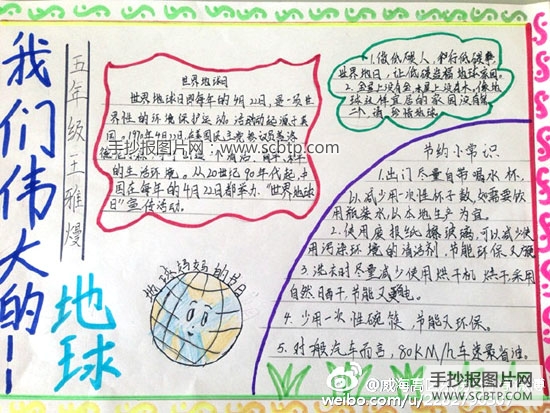 我们伟大的——
地球
五年级王雅熳
世界地球日
世界地球日即每年的4月22日,是一项世
界性的环境保护活动。活动起源于美
国。1970年4月22日,在美国民主党参议员盖洛
的生活环境。从20世纪90年代起,中
国在每年的4月22都举办"世界地球
日"宣传活动。
手抄报图片网:
www.scbtp.com
1.做低碳人,
世界地日,让低碳造福地球家园。
2.
球这样宜居的家园没有第
二个,请珍惜地球。
节约小常识
1.出门尽量自带喝水杯,
以减少用一次性杯子数,如需要饮
用瓶装水,以本地生产为宜。
2.使用废报纸擦玻璃,可以减少使
用污染环境的清洁剂,节能环保又
3.洗衣时尽量减少使用烘干机 烘干采用
自然日晒干,节能又
4.少用一次性碗筷,节能又环保。
5.对般汽车而言,80KM/h车
地球妈妈的节日
@威海高
weibo.com/u/
手抄报图片网
WWW.SCBTP.COM